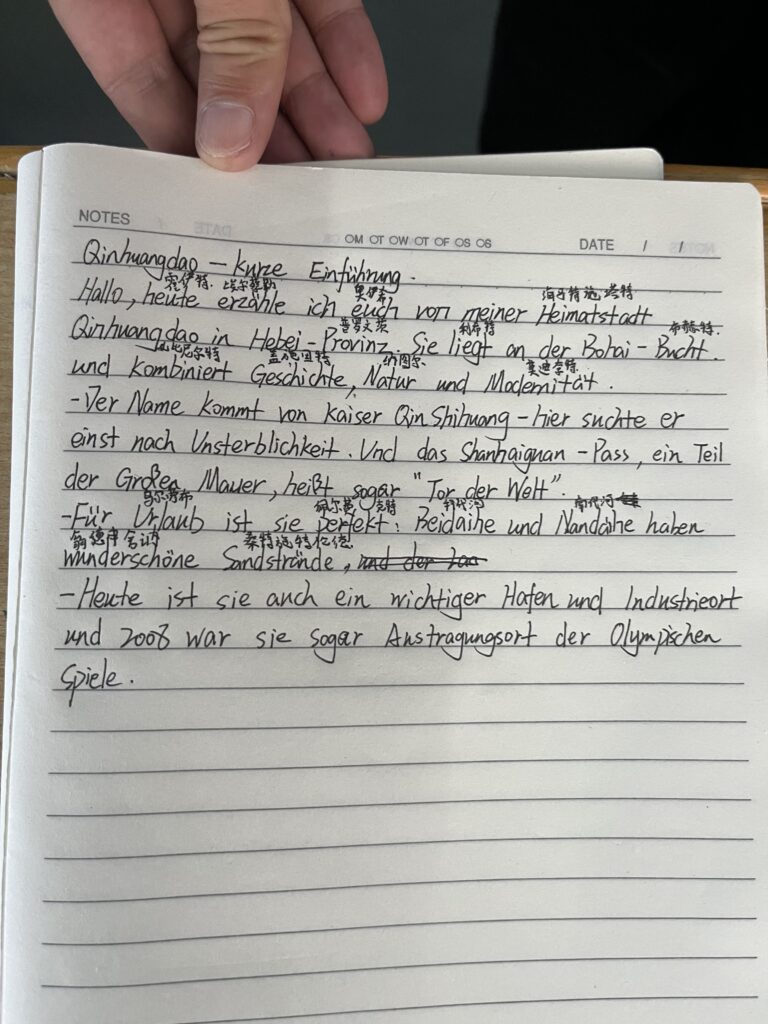 NOTES
OM OT OW OT OF OS OS
DATE / /
Qinhuangdao – kurze Einführung.
霍伊特 埃尔蔡勒 奥伊希 海马特施塔特
Hallo, heute erzähle ich euch von meiner Heimatstadt
普罗文茨 利希特 布赫特
Qinhuangdao in Hebei-Provinz. Sie liegt an der Bohai-Bucht.
纳图尔 莫迪尔尼特
und kombiniert Geschichte, Natur und Modernität.
-Der Name kommt von Kaiser Qin Shihuang – hier suchte er
einst nach Unsterblichkeit. Und das Shanhaiguan-Pass, ein Teil
der Großen Mauer, heißt sogar "Tor der Welt".
乌尔劳布 佩尔费克特 北代河 南代河
-Für Urlaub ist sie perfekt: Beidaihe und Nandaihe haben
桑特施特伦德
wunderschöne Sandstrände,
-Heute ist sie auch ein wichtiger Hafen und Industrieort
und 2008 war sie sogar Austragungsort der Olympischen
Spiele.